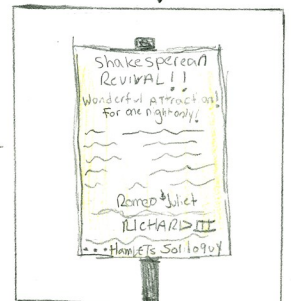 Shakesperean
Revival!!
Wonderful Attraction!
For one night only!
Romeo & Juliet
RICHARD III
...Hamlets Soliloquy